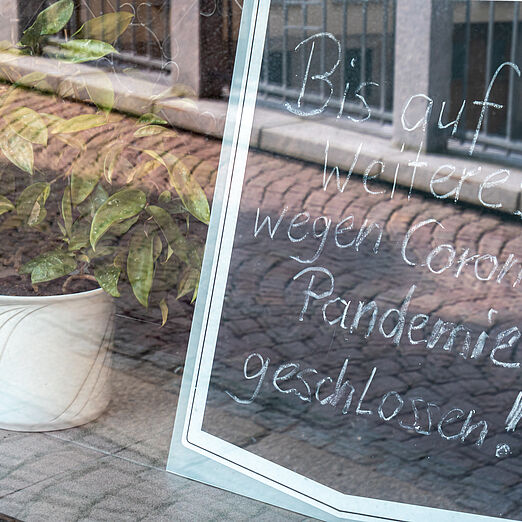 Bis auf
Weitere
wegen Coron
Pandemie
geschlossen!